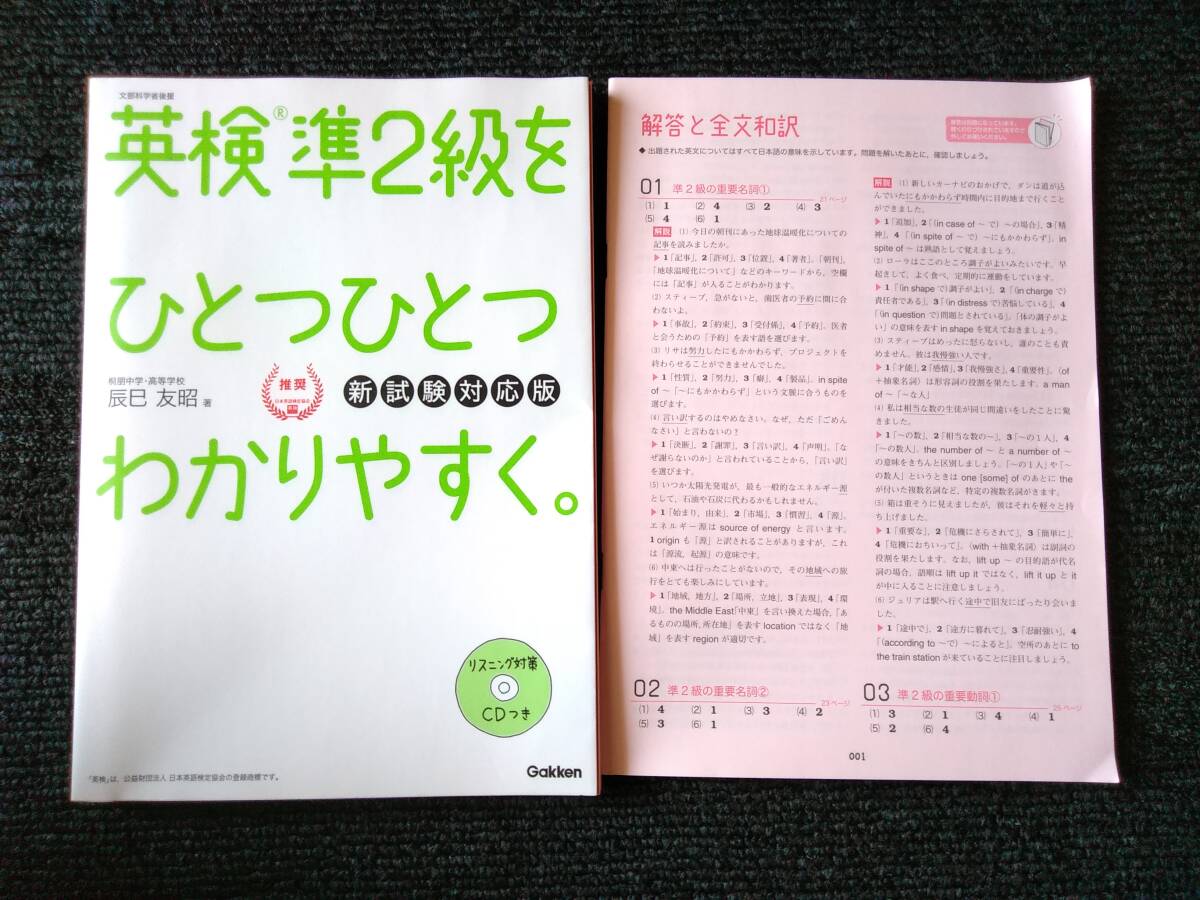 文部科学省後援
英検®準2級を
ひとつひとつ
桐朋中学・高等学校
辰巳 友昭 著
推奨
日本英語検定協会
新試験対応版
わかりやすく。
リスニング対策
CDつき
「英検」は、公益財団法人 日本英語検定協会の登録商標です。
Gakken
解答と全文和訳
解答は別冊になっています。
軽くのりづけされていますので
外してお使いください。
◆ 出題された英文についてはすべて日本語の意味を示しています。問題を解いたあとに、確認しましょう。
01 準2級の重要名詞①
21ページ
(1) 1 (2) 4 (3) 2 (4) 3
(5) 4 (6) 1
解説 (1) 今日の朝刊にあった地球温暖化についての
記事を読みましたか。
▶1「記事」，2「許可」，3「位置」，4「著者」。「朝刊」，
「地球温暖化について」などのキーワードから，空欄
には「記事」が入ることがわかります。
(2) スティーブ，急がないと，歯医者の予約に間に合
わないよ。
▶1「事故」，2「約束」，3「受付係」，4「予約」。医者
と会うための「予約」を表す語を選びます。
(3) リサは努力したにもかかわらず，プロジェクトを
終わらせることができませんでした。
▶1「性質」，2「努力」，3「癖」，4「製品」。in spite
of ～「～にもかかわらず」という文脈に合うものを
選びます。
(4) 言い訳するのはやめなさい。なぜ，ただ「ごめん
なさい」と言わないの？
▶1「決断」，2「謝罪」，3「言い訳」，4「声明」。「な
ぜ謝らないのか」と言われていることから，「言い訳」
を選びます。
(5) いつか太陽光発電が，最も一般的なエネルギー源
として，石油や石炭に代わるかもしれません。
▶1「始まり，由来」，2「市場」，3「慣習」，4「源」。
エネルギー源は source of energy と言います。
1 origin も「源」と訳されることがありますが，これ
は「源流，起源」の意味です。
(6) 中東へは行ったことがないので，その地域への旅
行をとても楽しみにしています。
▶1「地域，地方」，2「場所，立地」，3「表現」，4「環
境」。the Middle East「中東」を言い換えた場合，「あ
るものの場所，所在地」を表す location ではなく「地
域」を表す region が適切です。
02 準2級の重要名詞②
23ページ
(1) 4 (2) 1 (3) 3 (4) 2
(5) 3 (6) 1
解説 (1) 新しいカーナビのおかげで，ダンは道が込
んでいたにもかかわらず時間内に目的地まで行くこと
ができました。
▶1「追加」，2「(in case of ～ で) ～の場合」，3「精
神」，4「(in spite of ～ で) ～にもかかわらず」。in
spite of ～ は熟語として覚えましょう。
(2) ローラはここのところ調子がよいみたいです。早
起きして，よく食べ，定期的に運動をしています。
▶1「(in shape で) 調子がよい」，2「(in charge で)
責任者である」，3「(in distress で) 苦悩している」，4
「(in question で) 問題とされている」。「体の調子がよ
い」の意味を表す in shape を覚えておきましょう。
(3) スティーブはめったに怒らないし，誰のことも責
めません。彼は我慢強い人です。
▶1「才能」，2「感情」，3「我慢強さ」，4「重要性」。(of
＋抽象名詞) は形容詞の役割を果たします。a man
of ～「～な人」
(4) 私は相当な数の生徒が同じ間違いをしたことに驚
きました。
▶1「～の数」，2「相当な数の～」，3「～の1人」，4
「～の数人」。the number of ～ と a number of ～
の意味をきちんと区別しましょう。「～の1人」や「～
の数人」というときは one [some] of のあとに the
が付いた複数名詞など，特定の複数名詞がきます。
(5) 箱は重そうに見えましたが，彼はそれを軽々と持
ち上げました。
▶1「重要な」，2「危機にさらされて」，3「簡単に」，
4「危機におちいって」。(with＋抽象名詞) は副詞の
役割を果たします。なお，lift up ～ の目的語が代名
詞の場合，語順は lift up it ではなく，lift it up と it
が中に入ることに注意しましょう。
(6) ジュリアは駅へ行く途中で旧友にばったり会いま
した。
▶1「途中で」，2「途方に暮れて」，3「忍耐強い」，4
「(according to ～で) ～によると」。空所のあとに to
the train station が来ていることに注目しましょう。
03 準2級の重要動詞①
25ページ
(1) 3 (2) 1 (3) 4 (4) 1
(5) 2 (6) 4
001